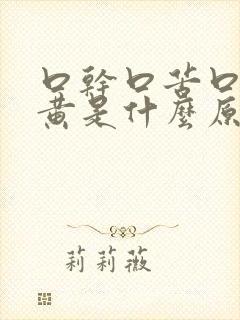 口幹口苦口
黃是什麼原
莉莉薇